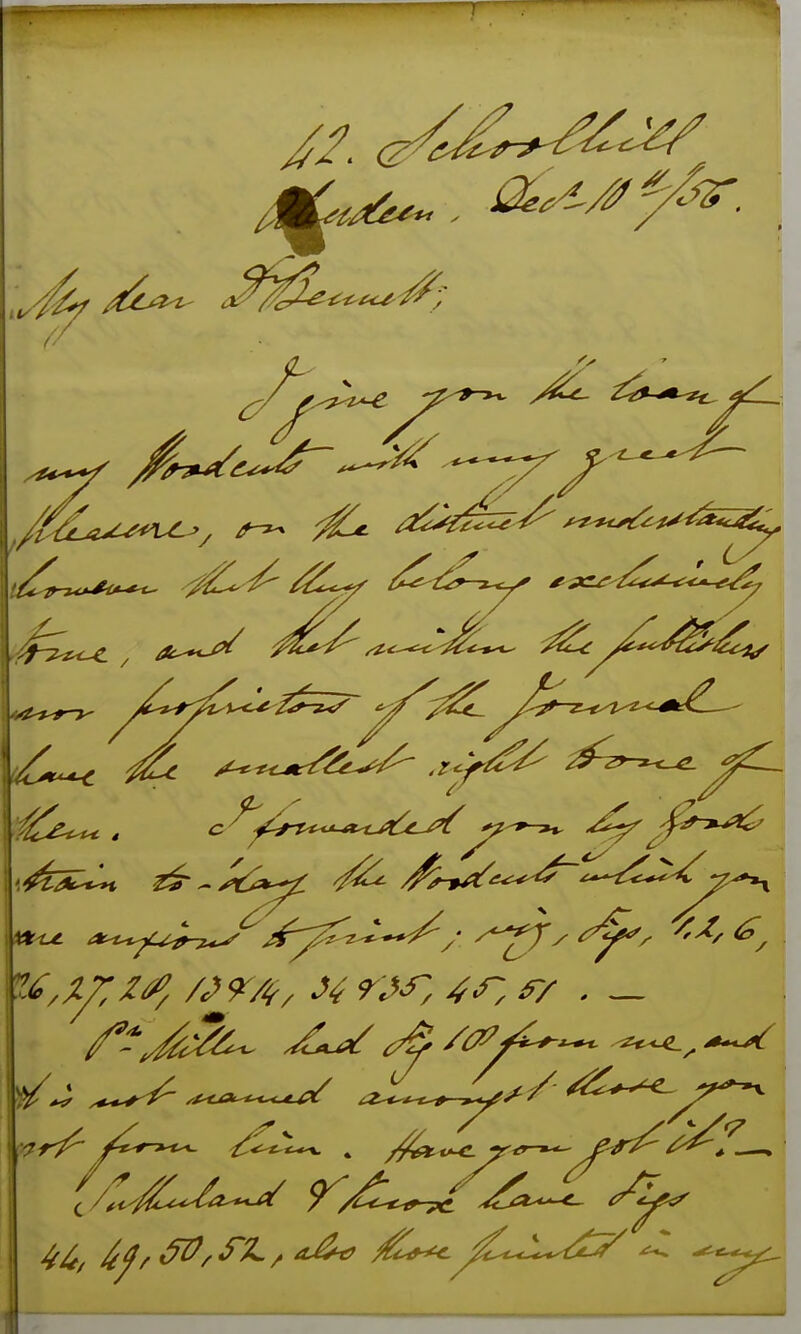 42. Schoolhill
Aberdeen. Decr. 10th/56.
My dear Dr Bennett;
I give you the loan of
my Woodcuts with very great
pleasure, on the distinct understanding
however that they belong exclusively
to me, and that neither the publishers
nor proprietors of the Journal
have the smallest right to one of
them. I forwarded you by goods
train to-day the Woodcuts which you
are anxious to print; viz, Figs, 1,2,6,
26,27,28, 13 & 14, 34 & 35, 45, 51. —
Pr. Miller had Fig 18 from me, and
it is not named amongst those you
got from him. Have you got it? —
Sutherland & Knox have Figs
44, 49, 50, 52, also those printed in my